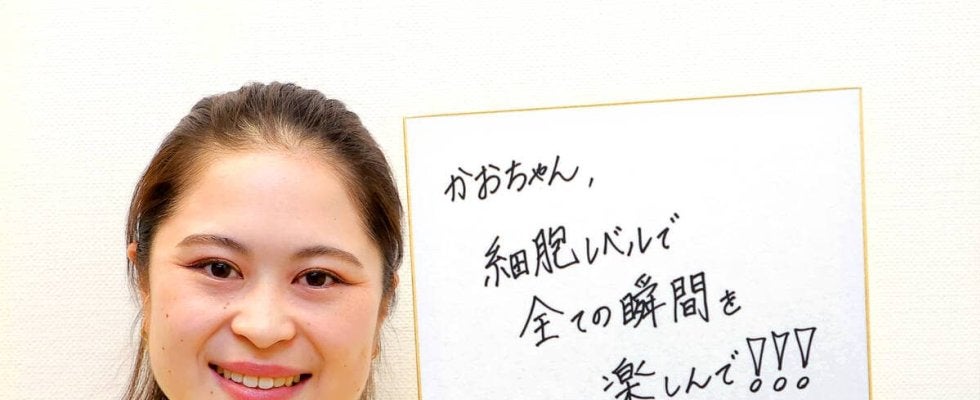 かおちゃん,
細胞レベルで
全ての瞬間を
楽しんで!!!